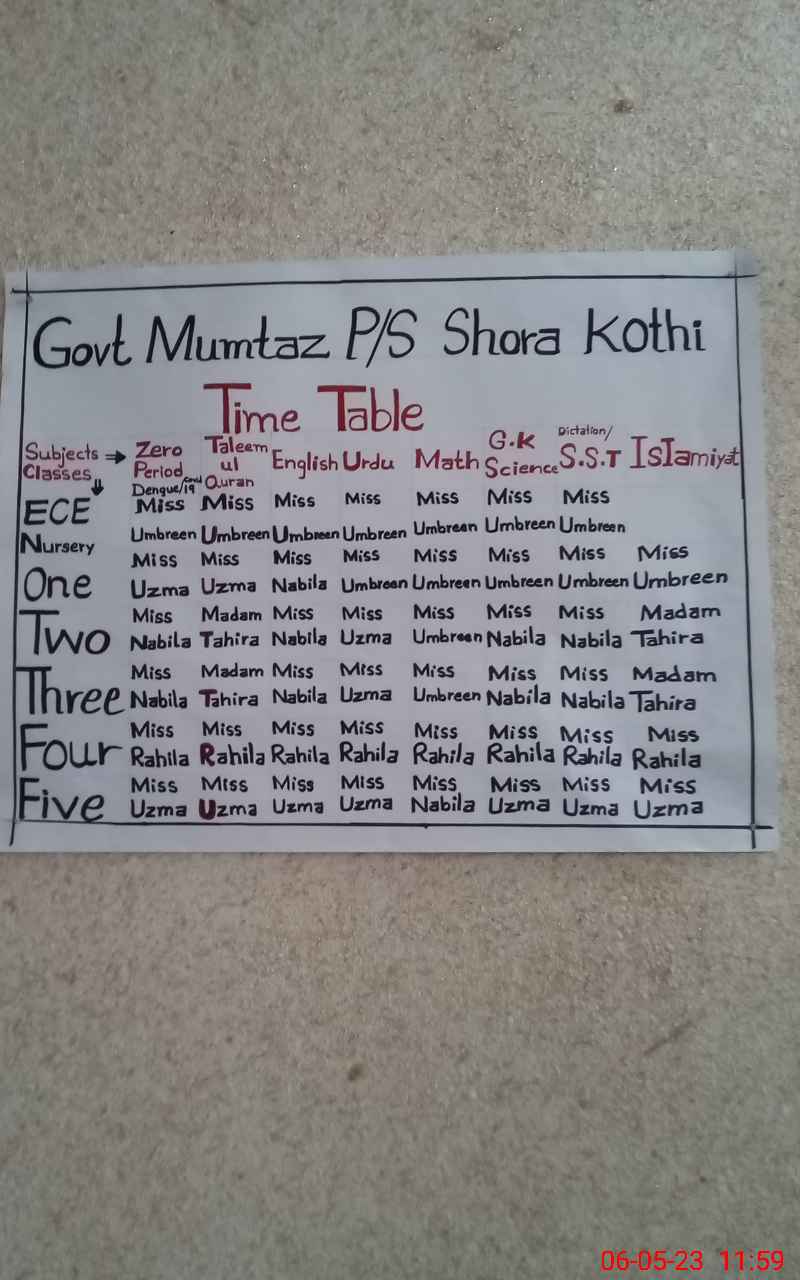 Govt Mumtaz P/S Shora Kothi
Time Table
Subjects → Zero Period Dengue/Covid 19 Taleem ul Quran English Urdu Math G.K Science Dictation/ S.S.T Islamiyat
Classes ⇓
ECE Miss Miss Miss Miss Miss Miss Miss
Nursery Umbreen Umbreen Umbreen Umbreen Umbreen Umbreen Umbreen
Miss Miss Miss Miss Miss Miss Miss Miss
One Uzma Uzma Nabila Umbreen Umbreen Umbreen Umbreen Umbreen
Miss Madam Miss Miss Miss Miss Miss Madam
Two Nabila Tahira Nabila Uzma Umbreen Nabila Nabila Tahira
Miss Madam Miss Miss Miss Miss Miss Madam
Three Nabila Tahira Nabila Uzma Umbreen Nabila Nabila Tahira
Miss Miss Miss Miss Miss Miss Miss Miss
Four Rahila Rahila Rahila Rahila Rahila Rahila Rahila Rahila
Miss Miss Miss Miss Miss Miss Miss Miss
Five Uzma Uzma Uzma Uzma Nabila Uzma Uzma Uzma
06-05-23 11:59